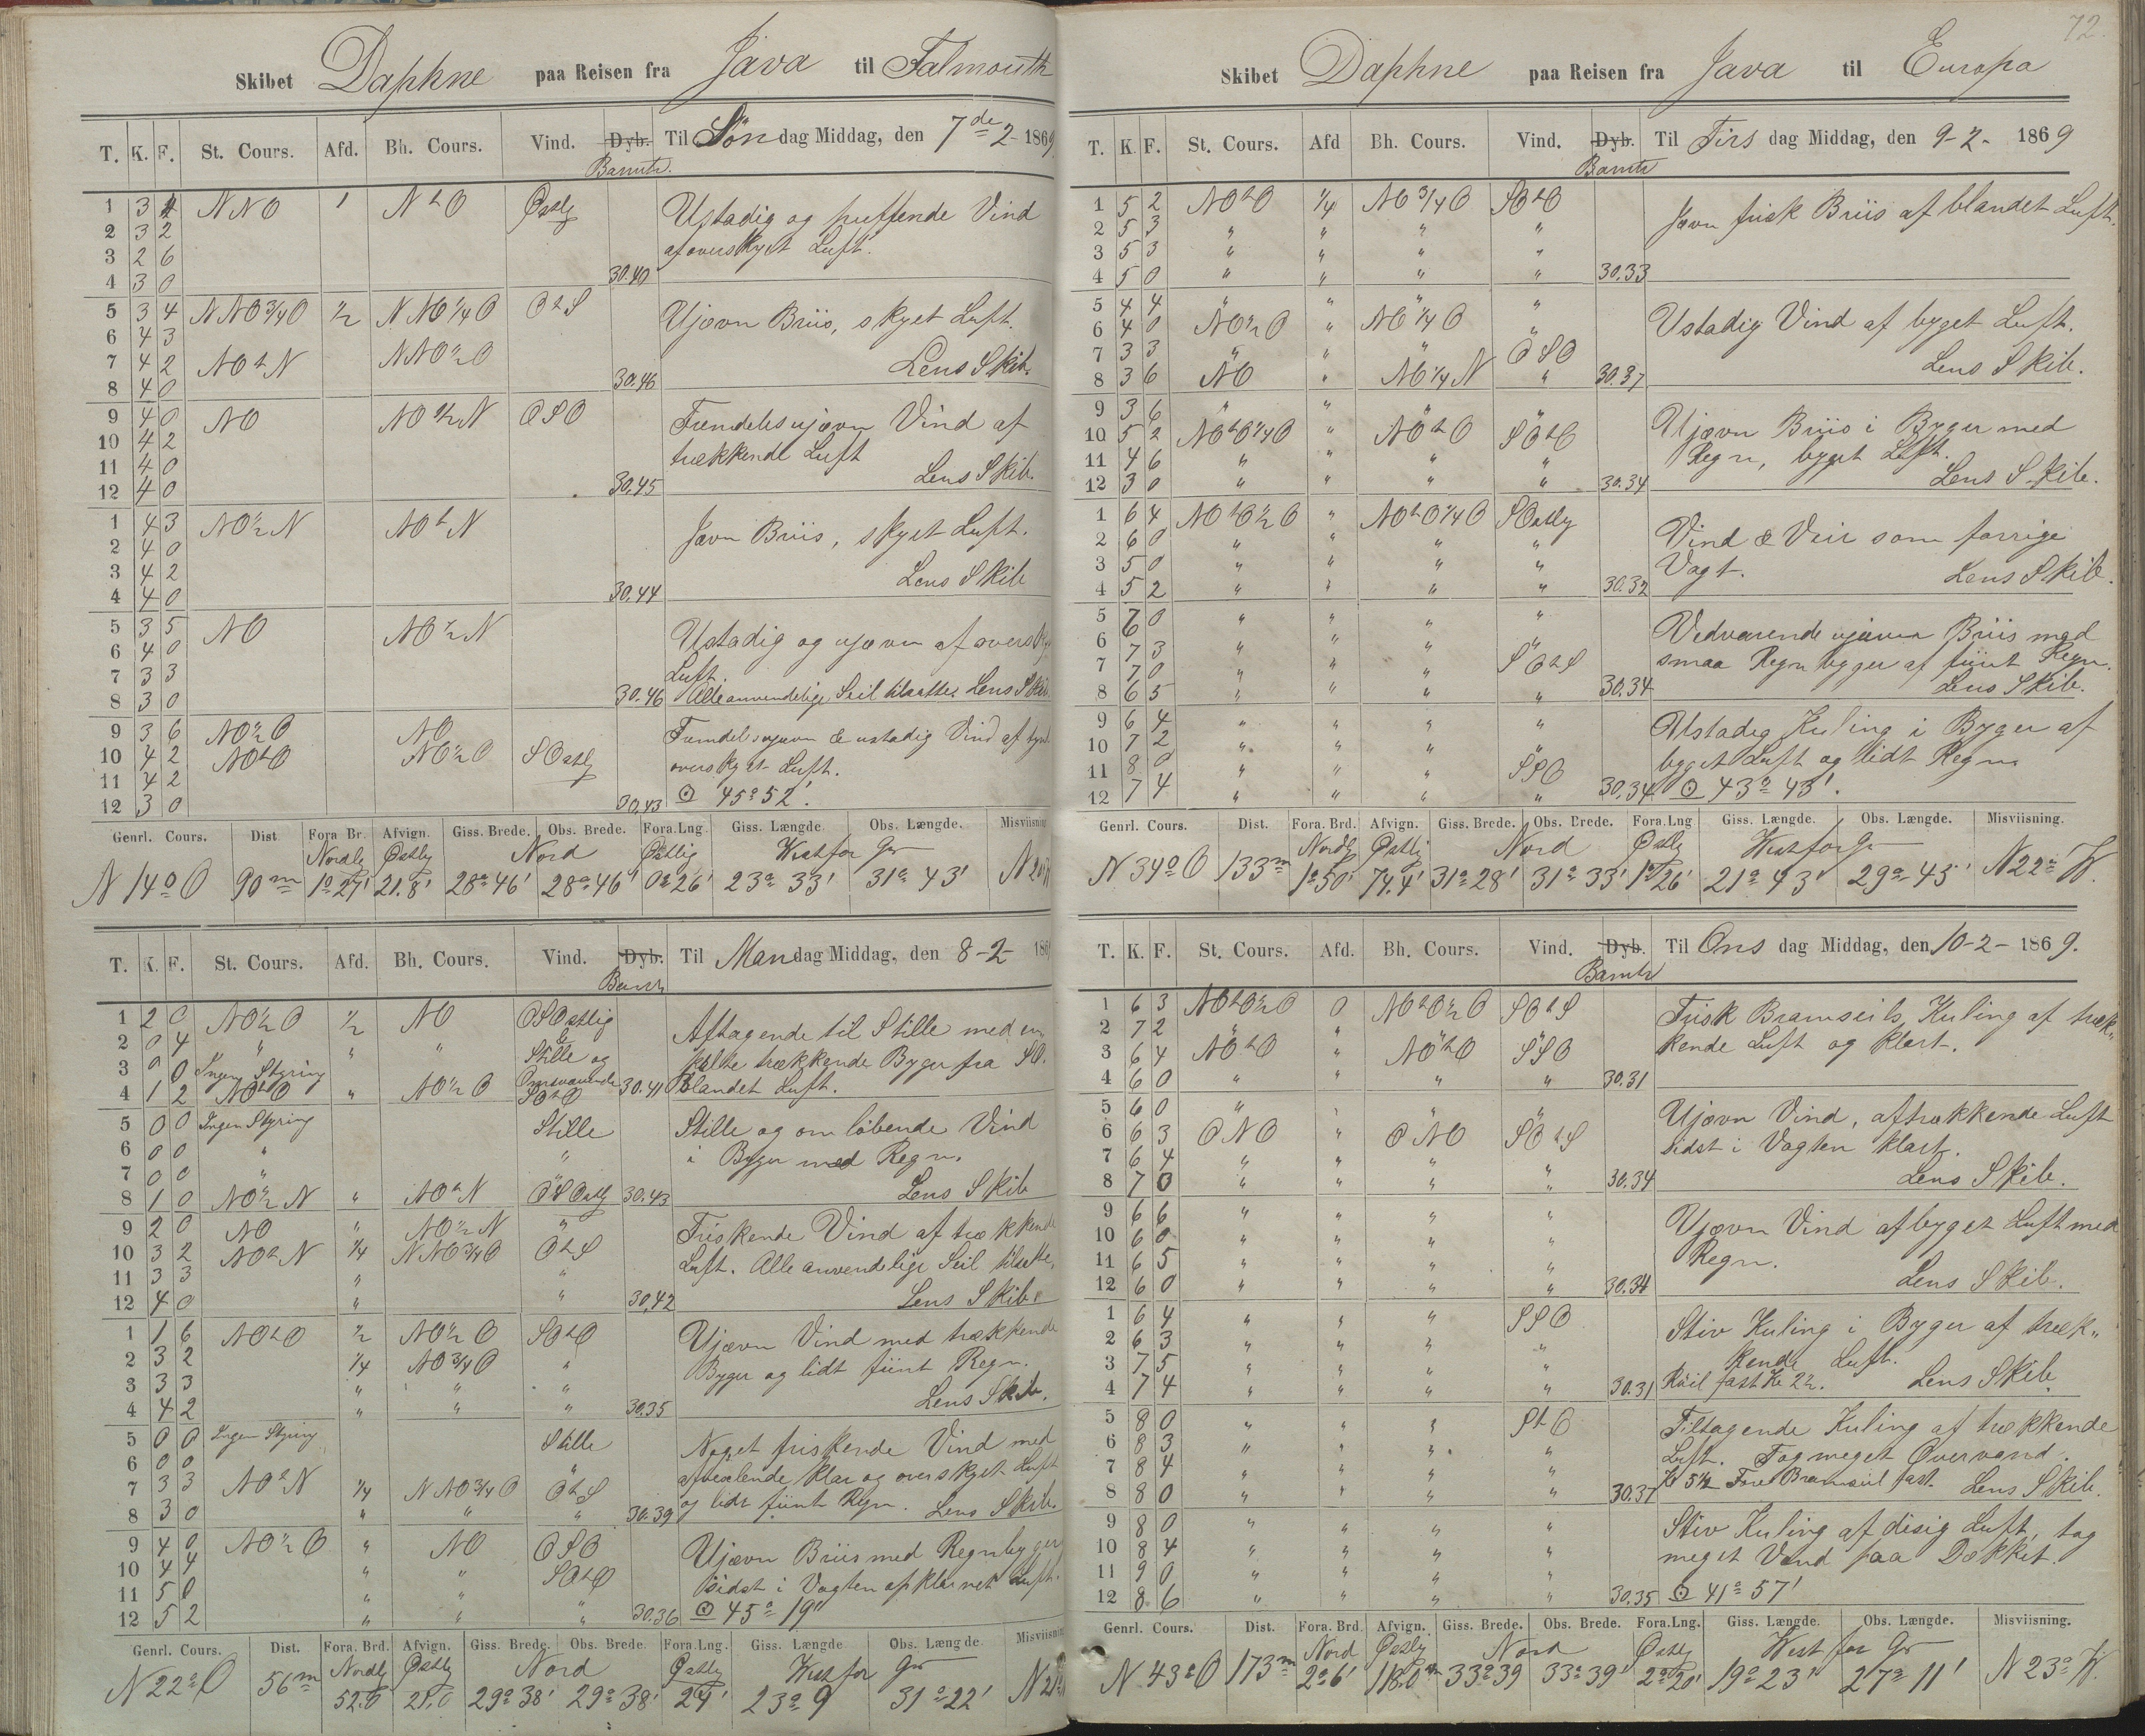 Skibet Daphne paa Reisen fra Java til Falmouth
T. K. F. St. Cours. Afd. Bh. Cours. Vind. Dyb. Til Søndag Middag, den 7de 2 1869
Bamtr.
1 3 4 NNO 1 NtO Østlig Ustadig og puffende Vind
2 3 2 af overskyet Luft.
3 2 6
4 3 0 30.40
5 3 4 NNO 3/4 O 1/2 NNO 1/4 O OtS Ujævn Briis, skyet Luft.
6 4 3
7 4 2 NOtN NNO 1/2 O Lens Skib.
8 4 0 30.46
9 4 0 NO NO 1/2 N OSO Fremdeles ujævn Vind af
10 4 2 trækkende Luft
11 4 0 Lens Skib.
12 4 0 30.45
1 4 3 NO 1/2 N NOtN Jævn Briis, skyet Luft.
2 4 0
3 4 2 Lens Skib
4 4 0 30.44
5 3 5 NO NO 1/2 N Ustadig og ujævn af
6 4 0 Luft.
7 3 3
8 3 0 30.46 Alle anvendelige Seil tilsatte. Lens Skib
9 3 6 NO 1/2 O NO Fremdeles ujævn & ustadig Vind af
10 4 2 NOtO NO 1/2 O SOstlig overskyet Luft.
11 4 2
12 3 0 30.43 ☉ 45° 52'.
Genrl. Cours. Dist Fora Br. Afvign. Giss. Brede. Obs. Brede. Fora.Lng. Giss. Længde. Obs. Længde. Misviisning
Nordlg Østlg Nord Østlig Westfor Gr
N 14° O 90m 1° 27' 21.8' 28° 46' 28° 46' 0° 26' 23° 33' 31° 43'
T. K. F. St. Cours. Afd. Bh. Cours. Vind. Dyb. Til Mandag Middag, den 8-2 186
Bamtr
1 2 0 NO 1/2 O 1/2 NO OSOstlig Aftagende til Stille med en
2 0 4 " " " & trækkende Byger fra SO.
3 0 0 Ingen Styring Stille og
4 1 2 NOtO " NO 1/2 O SOtO 30.41 blandet Luft.
5 0 0 Ingen Styring Stille Stille og om løbende Vind
6 0 0 " " i Byger med Regn.
7 0 0 "
8 1 0 NO 1/2 N " NOtN OSOstlg 30.43 Lens Skib
9 2 0 NO " NO 1/2 N " Friskende Vind af trækkende
10 3 2 NOtN 1/4 NNO 3/4 O OtS Luft. Alle anvendelige Seil tilsatte.
11 3 3 " "
12 4 0 " " 30.42 Lens Skib
1 1 6 NOtO 1/2 NO 1/2 O SOtO Ujævn Vind med trækkende
2 3 2 1/4 NO 3/4 O " Byger og lidt fiint Regn.
3 3 3 " " "
4 4 2 " " " 30.35 Lens Skib.
5 0 0 Ingen Styring Stille Noget friskende Vind med
6 0 0 " afvexlende klar og overskyet Luft
7 3 3 NOtN 1/4 NNO 3/4 O OtS
8 3 0 " " " 30.39 og lidt fiint Regn. Lens Skib.
9 4 0 NO 1/2 O " NO OSO Ujævn Briis med Regnbyger
10 4 4 " " SOtO sidst i Vagten afklarnet Luft.
11 5 0 " "
12 5 2 " " " 30.36 ☉ 45° 19'
Genrl. Cours. Dist. Fora. Brd. Afvign. Giss. Brede. Obs. Brede. Fora.Lng. Giss. Længde Obs. Længde Misviisning
Nordlg Østlg Nord Østlg Westfor Gr
N 22° O 56m 52.0 21.0 29° 38' 29° 38' 24' 23° 9 31° 22'
72.
Skibet Daphne paa Reisen fra Java til Europa
T. K F. St. Cours. Afd Bh. Cours. Vind. Dyb. Til Tirsdag Middag, den 9-2- 1869
Bamtr
1 5 2 NOtO 1/4 NO 3/4 O SOtO Jævn frisk Briis af blandet Luft.
2 5 3 " " " "
3 5 3 " " " "
4 5 0 " " " " 30.33
5 4 4 " " " " Ustadig Vind af byget Luft.
6 4 0 NO 1/2 O " NO 1/4 O "
7 3 3 " " " OSO Lens Skib.
8 3 6 NO " NO 1/4 N " 30.37
9 3 6 " " " " Ujævn Briis i Byger med
10 5 2 NOtO 1/4 O " NOtO SOtO Regn, byget Luft.
11 4 6 " " " "
12 3 0 " " " " 30.34 Lens Skib.
1 6 4 NOtO 1/2 O " NOtO 1/4 O SOstlg Vind & Veir som forrige
2 6 0 " " " " Vagt.
3 5 0 " " " "
4 5 2 " " " " 30.32 Lens Skib.
5 6 0 " " " " Vedvarende ujævn Briis med
6 7 3 " " " " smaa Regnbyger af fiint Regn.
7 7 0 " " " SOtS
8 6 5 " " " " 30.34 Lens Skib.
9 6 4 " " " " Ustadig Kuling i Byger af
10 7 2 " " " " byget Luft og lidt Regn
11 8 0 " " " SSO
12 7 4 " " " " 30.34 ☉ 43° 43'.
Genrl. Cours. Dist. Fora. Brd. Afvign. Giss. Brede. Obs. Brede. Fora.Lng Giss. Længde. Obs. Længde. Misviisning.
Nordlg Østlg Nord Østlg Westfor Gr
N 34° O 133m 1° 50' 74.4' 31° 28' 31° 33' 1° 26' 21° 43' 29° 45' N 22° W.
T. K. F. St. Cours. Afd. Bh. Cours. Vind. Dyb. Til Onsdag Middag, den 10-2- 1869.
Bamtr
1 6 3 NOtO 1/2 O 0 NOtO 1/2 O SOtS Frisk Bramseils Kuling af træk„
2 7 2 " " " " kende Luft og klart.
3 6 4 NOtO " NOtO SSO
4 6 0 " " " " 30.31
5 6 0 " " " " Ujævn Vind, aftrækkende Luft
6 6 3 ONO " ONO SOtS sidst i Vagten klart.
7 6 4 " " " "
8 7 0 " " " " 30.34 Lens Skib.
9 6 6 " " " " Ujævn Vind af byget Luft med
10 6 0 " " " " Regn.
11 6 5 " " " "
12 6 0 " " " " 30.34 Lens Skib.
1 6 4 " " " SSO Stiv Kuling i Byger af træk„
2 6 3 " " " " kende Luft.
3 7 5 " " " "
4 7 4 " " " " 30.31 Røil fast Kl 2 1/2. Lens Skib
5 8 0 " " " StO Tiltagende Kuling af trækkende
6 8 3 " " " " Luft. Tog meget Overvand.
7 8 4 " " " "
8 8 0 " " " " 30.37 Kl 5 1/2 Fore Bramseil fast. Lens Skib.
9 8 0 " " " " Stiv Kuling af disig Luft, tog
10 8 4 " " " " meget Vand paa Dækket.
11 9 0 " " " "
12 8 6 " " " " 30.35 ☉ 41° 57'
Genrl. Cours. Dist. Fora. Brd. Afvign. Giss. Brede. Obs. Brede. Fora.Lng. Giss. Længde. Obs. Længde. Misviisning.
Nord Østlg Nord Østl West for Gr
N 43° O 173m 2° 6' 118.0 33° 39 33° 39' 2° 20' 19° 23' 27° 11' N 23° W.